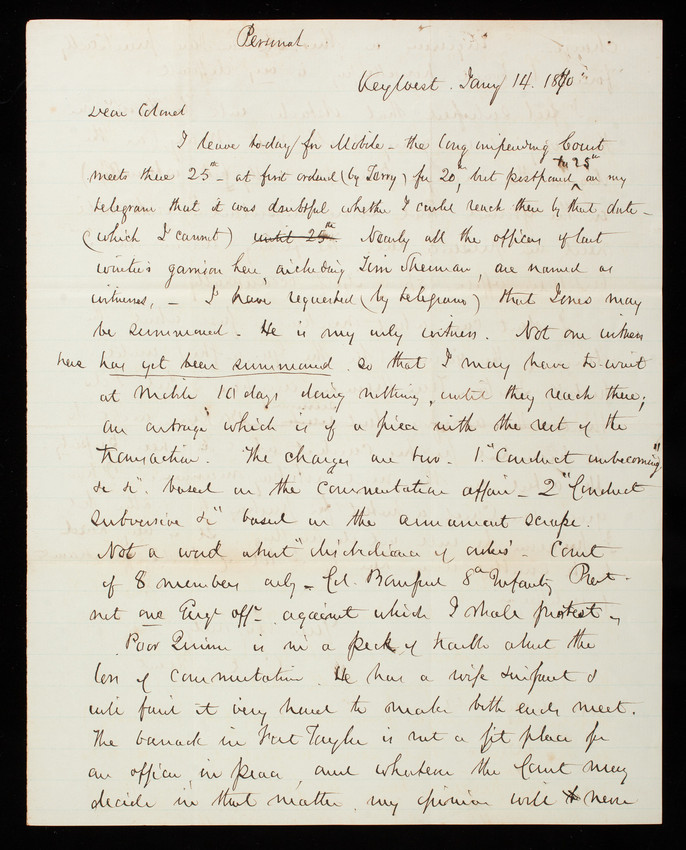 Personal
Key West. Jany 14. 1870
Dear Colonel
I leave to-day for Mobile - the long impending Court
meets there 25th - at first ordered (by Terry) for 20th, but postponed to 25th on my
telegram that it was doubtful whether I could reach there by that date -
(which I cannot) until 25th Nearly all the officers of last
winter's garrison here, including Tim Sherman, are named as
witnesses, - I have requested (by telegram) that Jones may
be summoned - He is my only witness. Not one witness
here has yet been summoned so that I may have to wait
at Mobile 10 days doing nothing, until they reach there;
an outrage which is of a piece with the rest of the
transaction. The charges are two - 1. "Conduct unbecoming"
&c &c". based on the commutation affair - 2 "Conduct
subversive &c" based on the armament scrape.
Not a word about "disobedience of orders" - Court
of 8 members only - Col. 8th Infantry Prest.
not one Engr offr against which I shall protest -
Poor Quinn is in a peck of trouble about the
loss of commutation. He has a wife & infant &
will find it very hard to make both ends meet.
The barrack in Fort Taylor is not a fit place for
an officer, in peace, and whatever the Court may
decide in that matter, my opinion will never